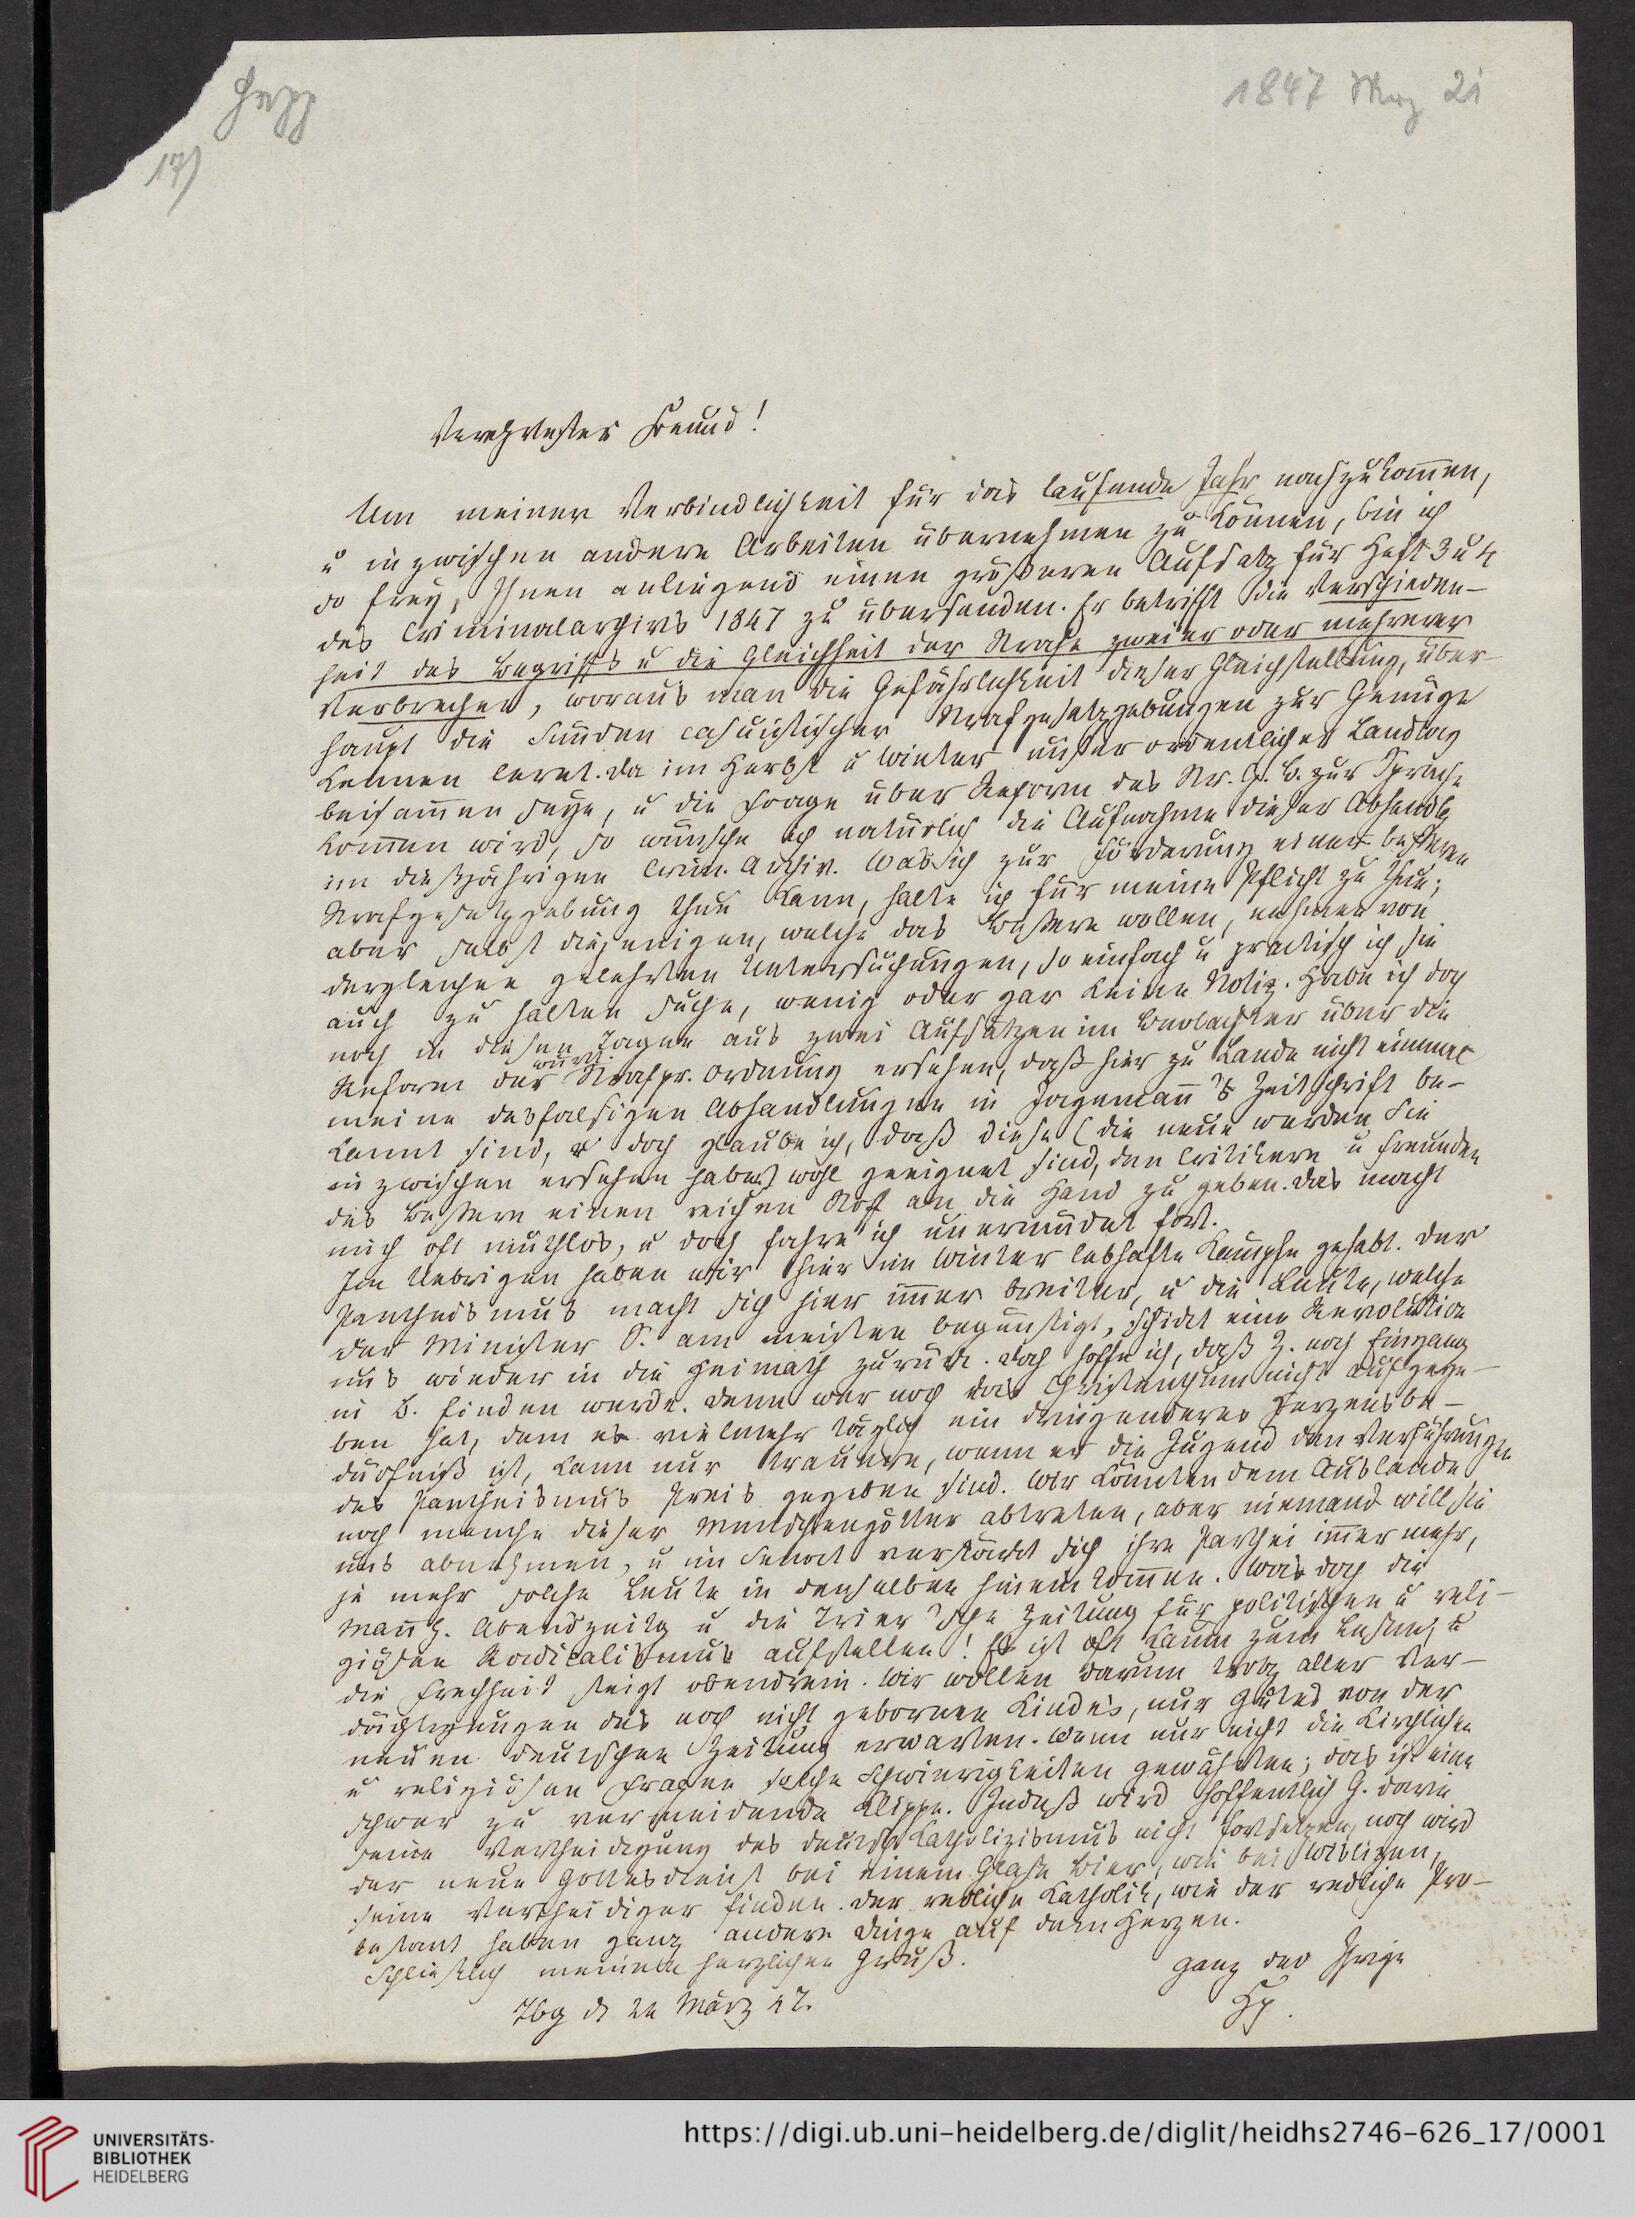 Hepp
1847 Mrz 21
17)
Verehrtester Freund!
Um meiner Verbindlichkeit für das laufende Jahr nachzukommen,
u inzwischen andere Arbeiten übernehmen zu können, bin ich
so frey, Ihnen anliegend einen größeren Aufsatz für Heft 3 u 4
des Criminalarchivs 1847 zu übersenden. Er betrifft die Verschieden-
heit des Begriffs u die Gleichheit der Strafe zweier oder mehrerer
Verbrechen, woraus man die Gefährlichkeit dieser Gleichstellung, über-
haupt die Sünden casuistischer Strafgesetzgebungen zur Genüge
kennen lernt. Da im Herbst u Winter unser ordentlicher Landtag
beisammen seyn, u die Frage über Reform des Str. G. B. zur Sprache
kommen wird, so wünsche ich natürlich die Aufnahme dieser Abhandlg
im dießjährigen Crim. Archiv. Was ich zur Förderung einer besseren
Strafgesetzgebung thun kann, halte ich für meine Pflicht zu thun;
aber selbst diejenigen, welche das Bessere wollen, nehmen von
dergleichen gelehrten Untersuchungen, so einfach u practisch ich sie
auch zu halten suche, wenig oder gar keine Notiz. Habe ich doch
noch in diesen Tagen aus zwei Aufsätzen im Beobachter über die
Reform der würt. Strafpr. Ordnung ersehen, daß hier zu Lande nicht einmal
meine desfalsigen Abhandlungen in Jagemann's Zeitschrift be-
kannt sind, u doch glaube ich, daß diese (die neue werden Sie
inzwischen ersehen haben) wohl geeignet sind, den Critikern u Freunden
des Bessern einen reichen Stoff an die Hand zu geben. Das macht
mich oft muthlos, u doch fahre ich unermüdet fort.
Im Uebrigen haben wir hier im Winter lebhafte Kämpfe gehabt. Der
Pantheismus macht sich hier immer breiter, u die Leute, welche
der Minister S. am meisten begünstigt, schickt eine Revolution
uns wieder in die Heimath zurück. Doch hoffe ich, daß Z. noch Eingang
in B. finden werde. Denn wer noch das Christenthum nicht aufgege-
ben hat, dem es vielmehr täglich ein dringenderes Herzensbe-
dürfniß ist, kann nur trauern, wenn er die Jugend den Verführungen
des Pantheismus Preis gegeben sind. Wir könnten dem Auslande
noch manche dieser Menschengötter abtreten, aber niemand will sie
uns abnehmen, u im Senat verstärkt sich ihre Parthei immer mehr,
je mehr solche Leute in denselben hineinkommen. Was doch die
Mannh. Abendzeitg u die Trier'sche Zeitung für politischen u reli-
giösen Radicalismus aufstellen! Es ist oft kaum zum Lesen, u
die Frechheit steigt obendrein. Wir wollen darum trotz aller Ver-
dächtigungen des noch nicht gebornen Kindes, nur Gutes von der
neuen deutschen Zeitung erwarten. Wenn nur nicht die kirchlichen
u religiösen Fragen solche Schwierigkeiten gewährten; das ist eine
schwer zu vermeidende Klippe. Indeß wird hoffentlich G. darin
seine Vertheidigung des deutsch Katholizismus nicht fortsetzen, noch wird
der neue Gottesdienst bei einem Glase Bier, wie bei
seine Vertheidiger finden. Der redliche Katholik, wie der redliche Pro-
testant haben ganz andere Dinge auf dem Herzen.
Schließlich meinen herzlichen Gruß.
ganz der Ihrige
Hp.
Tbg d 21 März 47.
UNIVERSITÄTS-
BIBLIOTHEK
HEIDELBERG
https://digi.ub.uni-heidelberg.de/diglit/heidhs2746-626_17/0001